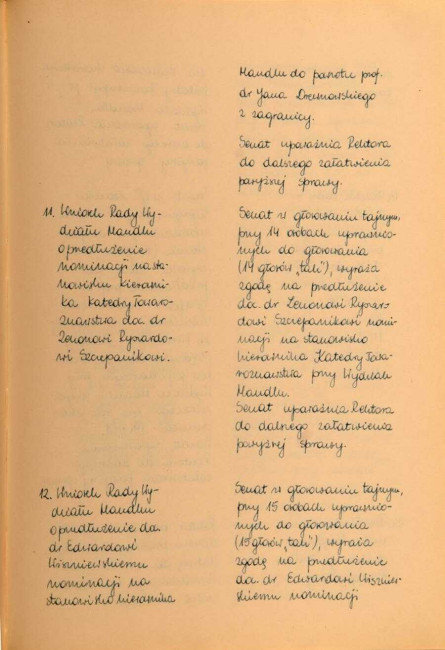 Handlu do powrotu prof.
dr Jana Drewnowskiego
z zagranicy.
Senat upoważnia Rektora
do dalszego załatwienia
powyższej sprawy.
11. Wniosek Rady Wy-
działu Handlu
o przedłużenie
nominacji na sta-
nowisku kierowni-
ka Katedry Towaro-
znawstwa doc. dr
Zenonowi Ryszardo-
wi Szczepanikowi.
Senat w głosowaniu tajnym,
przy 14 osobach uprawnio-
nych do głosowania
(14 głosów „tak"), wyraża
zgodę na przedłużenie
doc. dr Zenonowi Ryszar-
dowi Szczepanikowi nomi-
nacji na stanowisko
kierownika Katedry Towa-
roznawstwa przy Wydziale
Handlu.
Senat upoważnia Rektora
do dalszego załatwienia
powyższej sprawy.
12. Wniosek Rady Wy-
działu Handlu
o przedłużenie doc.
dr Edwardowi
Wiszniewskiemu
nominacji na
stanowisko kierownika
Senat w głosowaniu tajnym,
przy 15 osobach uprawnio-
nych do głosowania
(15 głosów „tak"), wyraża
zgodę na przedłużenie
doc. dr Edwardowi Wiszniew-
skiemu nominacji